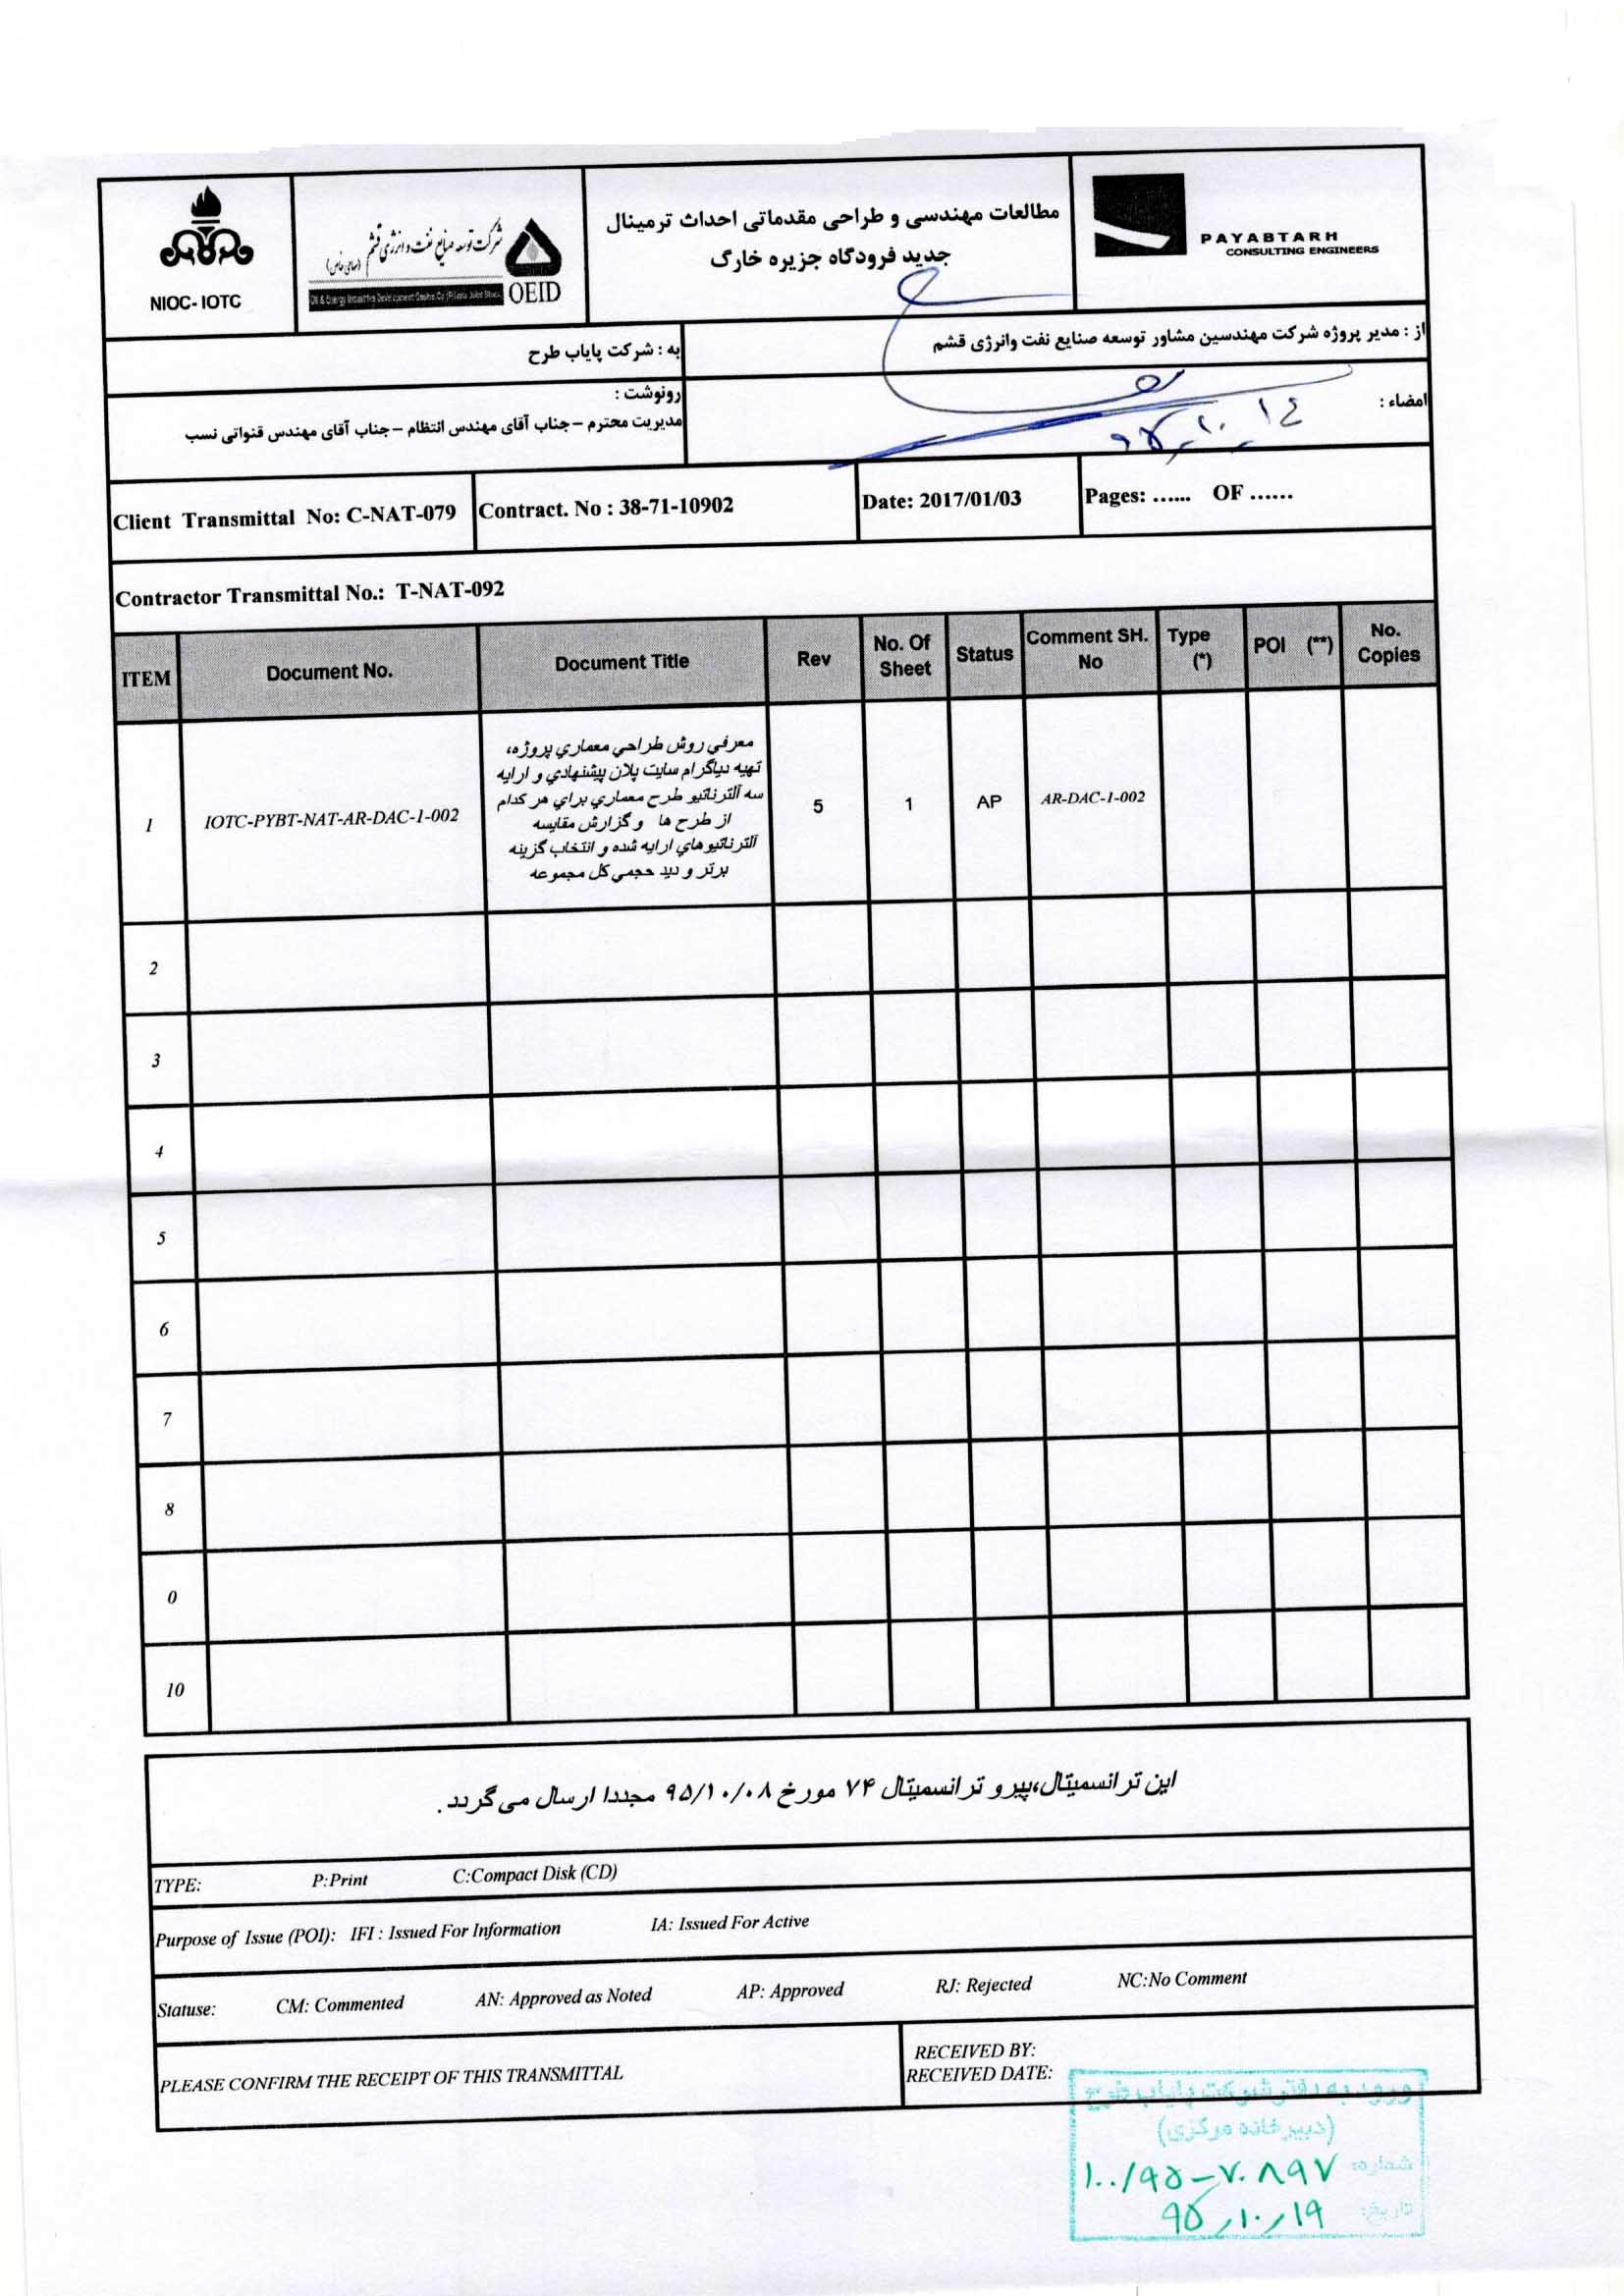 NIOC- IOTC
شرکت توسعه صنایع نفت و انرژی قشم
(سهامی خاص)
OEID
مطالعات مهندسی و طراحی مقدماتی احداث ترمینال
جدید فرودگاه جزیره خارگ
PAYABTARH
CONSULTING ENGINEERS
از : مدیر پروژه شرکت مهندسین مشاور توسعه صنایع نفت وانرژی قشم
به : شرکت پایاب طرح
امضاء :
۹۵/۱۰/۱۴
رونوشت :
مدیریت محترم –جناب آقای مهندس انتظام –جناب آقای مهندس قنواتی نسب
Client Transmittal No: C-NAT-079 Contract. No : 38-71-10902 Date: 2017/01/03 Pages: ...... OF ......
Contractor Transmittal No.: T-NAT-092
ITEM Document No. Document Title Rev No. Of Sheet Status Comment SH. No Type (*) POI (**) No. Copies
1 IOTC-PYBT-NAT-AR-DAC-1-002
معرفي روش طراحي معماري پروژه،
تهيه دياگرام سايت پلان پيشنهادي و ارايه
سه آلترناتيو طرح معماري براي هر كدام
از طرح ها و گزارش مقايسه
آلترناتيو هاي ارايه شده و انتخاب گزينه
برتر و ديد حجمي كل مجموعه
5 1 AP AR-DAC-1-002
2
3
4
5
6
7
8
0
10
این ترانسمیتال،پیرو ترانسمیتال ۷۴ مورخ ۹۵/۱۰/۰۸ مجددا ارسال می گردد.
TYPE: P:Print C:Compact Disk (CD)
Purpose of Issue (POI): IFI : Issued For Information IA: Issued For Active
Statuse: CM: Commented AN: Approved as Noted AP: Approved RJ: Rejected NC:No Comment
PLEASE CONFIRM THE RECEIPT OF THIS TRANSMITTAL
RECEIVED BY:
RECEIVED DATE:
ورود به دفتر شرکت پایاب طرح
(دبیرخانه مرکزی)
شماره: ۱۰۰/۹۵-۷۰۸۹۷
تاریخ: ۹۵/۱۰/۱۹